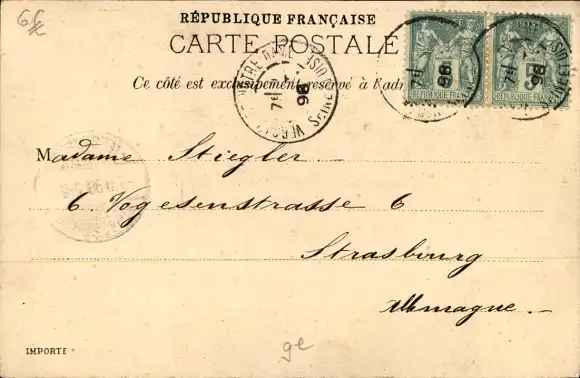 6
RÉPUBLIQUE FRANÇAISE
CARTE POSTALE
Ce côté est exclusivement réservé à l'adr
98
98
98
Madame Stiegler
6. Vogesenstrasse 6
Strasbourg
Allemagne. -
IMPORTÉ
ge